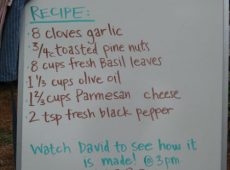 RECIPE:
• 8 cloves garlic
• 3/4c toasted pine nuts
• 8 cups fresh Basil leaves
• 1 1/3 cups olive oil
• 1 2/3 cups Parmesan cheese
• 2 tsp fresh black pepper
Watch David to see how it
is made! @ 3pm